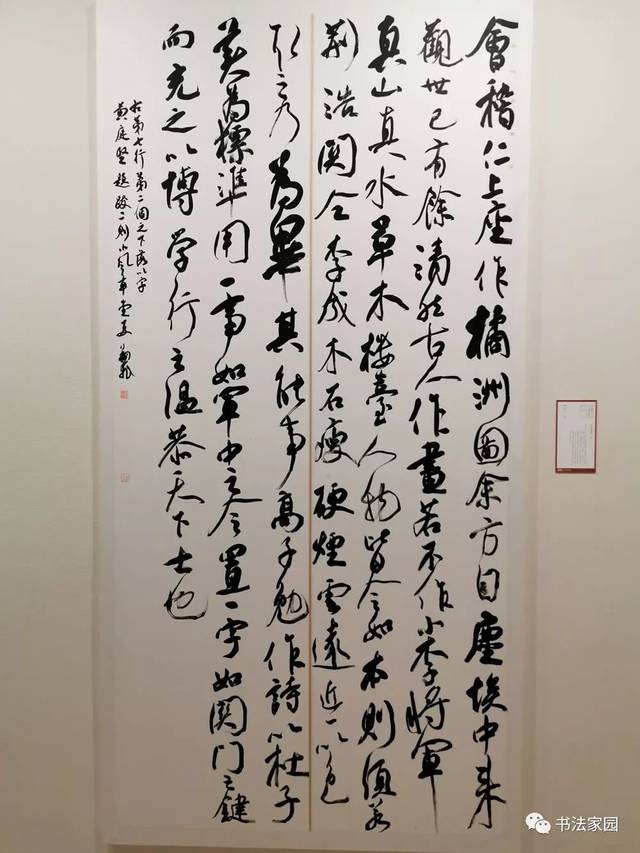 會稽仁上座作橘洲圖余方自塵埃中来
觀世已有餘清然古人作畫若不作小李將軍
真山真水草木樓臺人物皆令如本則須若
荆浩関仝李成木石瘦硬煙雲遠近一以色
取之乃為畢其能事高子勉作詩以杜子
美為標準用一事如軍中之令置一字如関門之鍵
而充之以博学行之温恭天下士也
第七行第二個之下落以字
黄庭堅題跋二則
书法家园